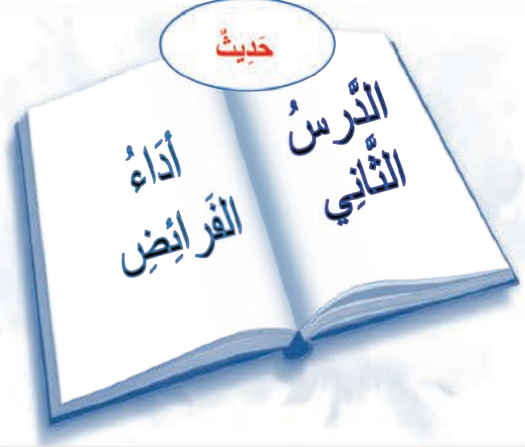 حَدِيثٌ
الدَّرسُ
الثَّانِي
أَدَاءُ
الفَرائِضِ